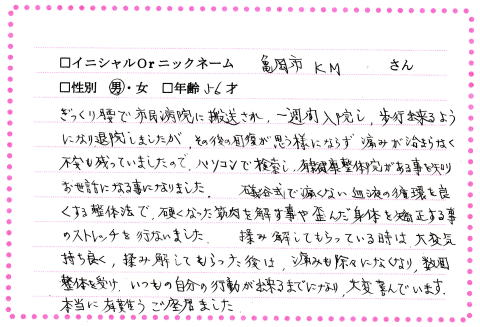 □イニシャルOrニックネーム 亀岡市 KM さん
□性別 男・女 □年齢 56才
ぎっくり腰で市民病院に搬送され、一週間入院し、歩行出来るよう
になり退院しましたが、その後の回復が思う様にならず 痛みが治まらなく
不安も残っていましたので、パソコンで検索し、整体院がある事を知り
お世話になる事になりました。 礒谷式で痛くない血液の循環を良
くする整体法で、硬くなった筋肉を解す事や歪んだ身体を矯正する事
のストレッチを行ないました。 揉み解してもらっている時は、大変気
持ち良く、揉み解してもらった後は、痛みも除々になくなり、数回
整体を受け、いつもの自分の行動が出来るまでになり、大変喜んでいます。
本当に有難うご座居ました。